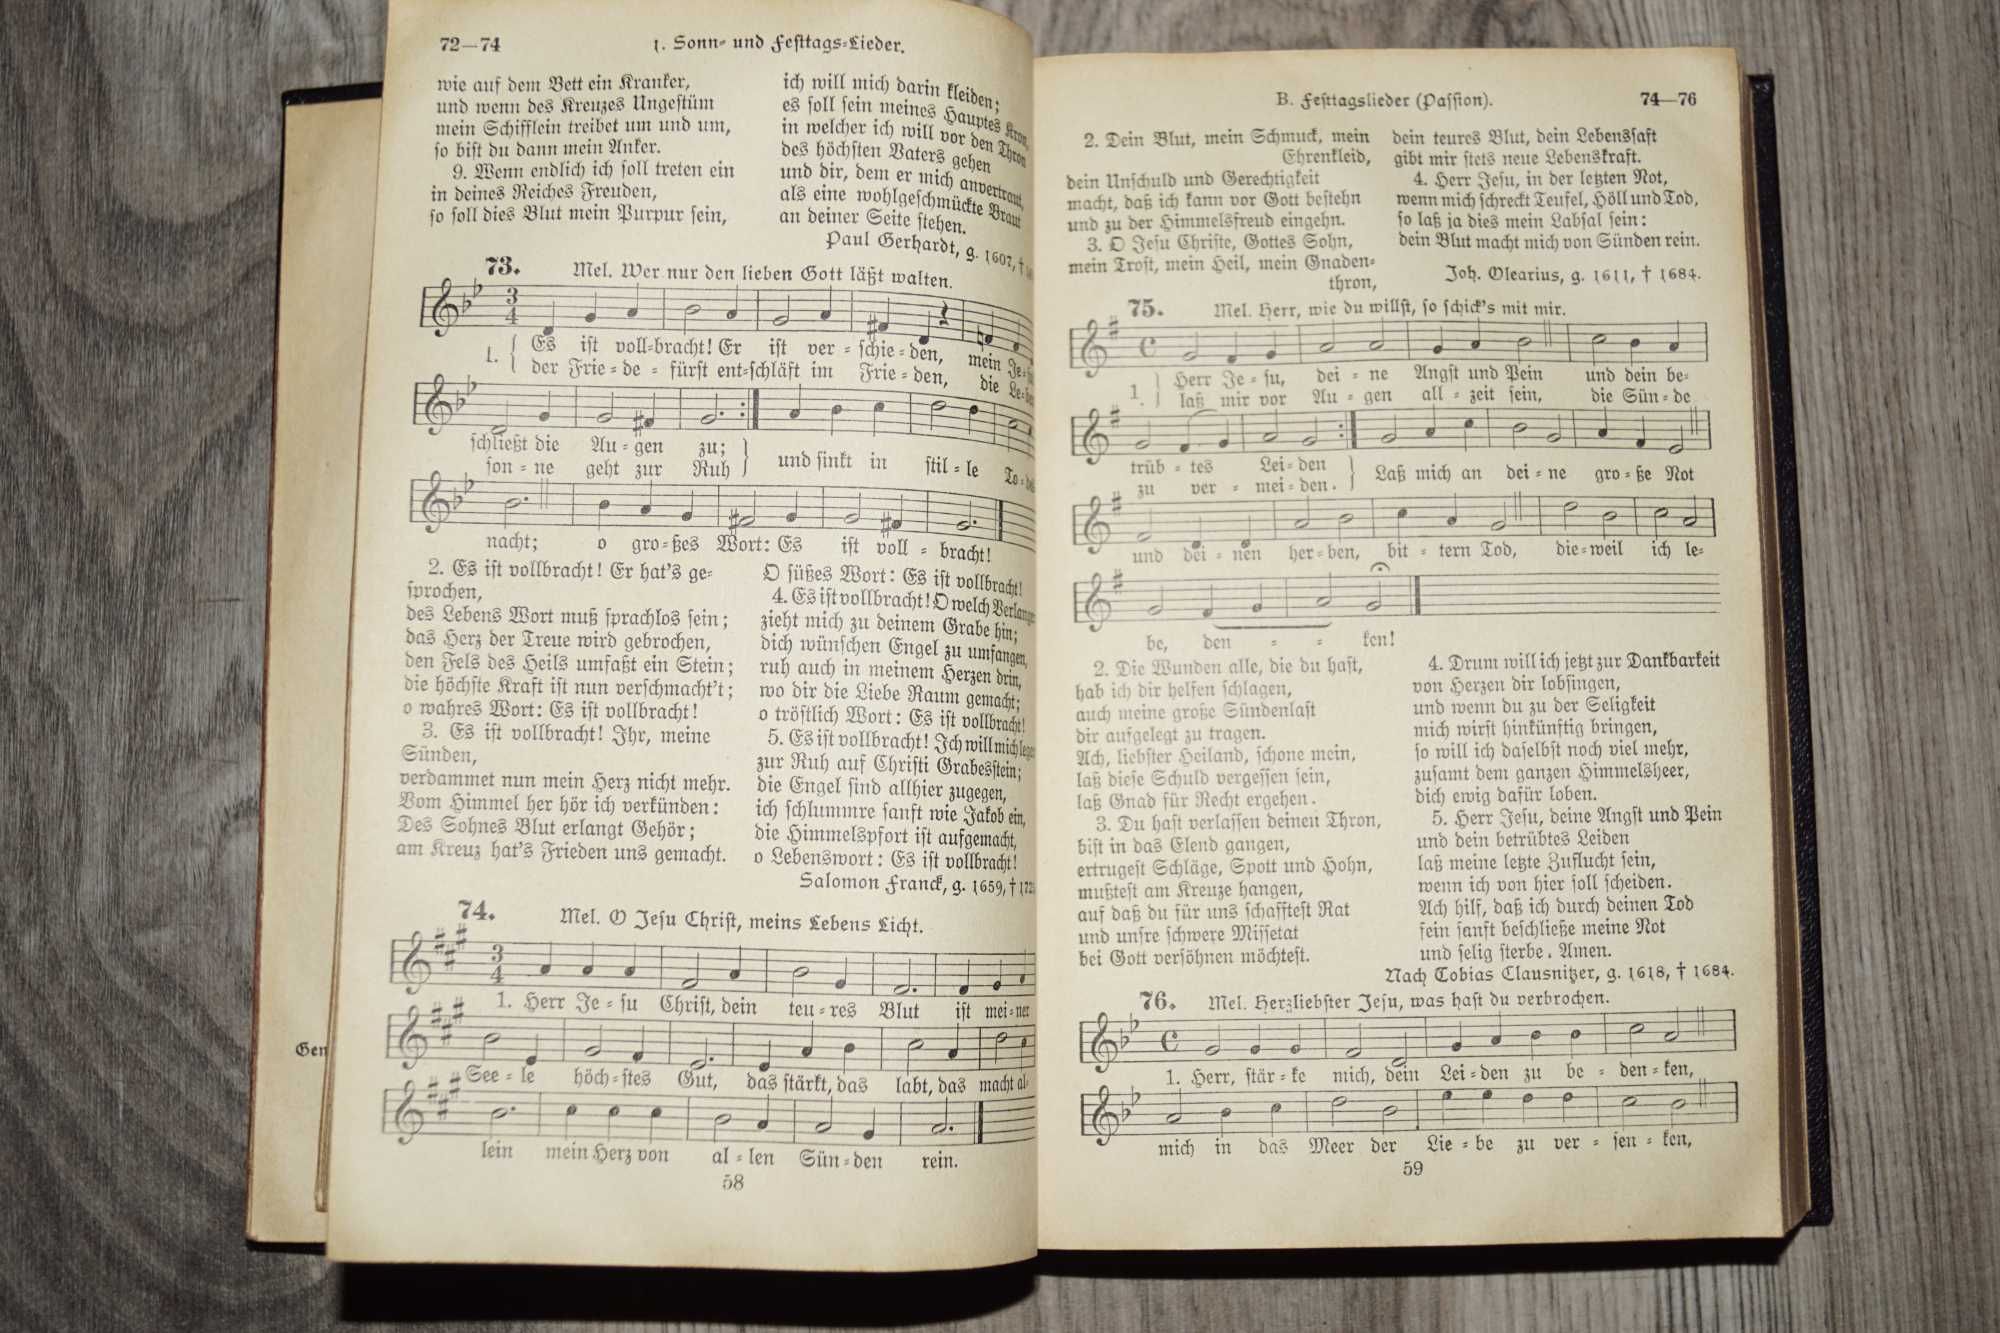 72—74
1. Sonn- und Festtags-Lieder.
wie auf dem Bett ein Kranker,
und wenn des Kreuzes Ungestüm
mein Schifflein treibet um und um,
so bist du dann mein Anker.
9. Wenn endlich ich soll treten ein
in deines Reiches Freuden,
so soll dies Blut mein Purpur sein,
ich will mich darin kleiden;
es soll sein meines Hauptes Kron,
in welcher ich will vor den Thron
des höchsten Vaters gehen
und dir, dem er mich anvertraut,
als eine wohlgeschmückte Braut
an deiner Seite stehen.
Paul Gerhardt, g. 1607, †
73.
Mel. Wer nur den lieben Gott läßt walten.
3
4
1. Es ist voll-bracht! Er ist ver-schie-den, mein Je-
der Frie-de-fürst ent-schläft im Frie-den, die Le-
schließt die Au-gen zu;
son-ne geht zur Ruh
und sinkt in stil-le To-
nacht; o gro-ßes Wort: Es ist voll-bracht!
2. Es ist vollbracht! Er hat's ge-
sprochen,
des Lebens Wort muß sprachlos sein;
das Herz der Treue wird gebrochen,
den Fels des Heils umfaßt ein Stein;
die höchste Kraft ist nun verschmacht't;
o wahres Wort: Es ist vollbracht!
3. Es ist vollbracht! Ihr, meine
Sünden,
verdammet nun mein Herz nicht mehr.
Vom Himmel her hör ich verkünden:
Des Sohnes Blut erlangt Gehör;
am Kreuz hat's Frieden uns gemacht.
O süßes Wort: Es ist vollbracht!
4. Es ist vollbracht! O welch Verlangen
zieht mich zu deinem Grabe hin;
dich wünschen Engel zu umfangen,
ruh auch in meinem Herzen drin,
wo dir die Liebe Raum gemacht;
o tröstlich Wort: Es ist vollbracht!
5. Es ist vollbracht! Ich will mich legen
zur Ruh auf Christi Grabesstein;
die Engel sind allhier zugegen,
ich schlummre sanft wie Jakob ein,
die Himmelspfort ist aufgemacht,
o Lebenswort: Es ist vollbracht!
Salomon Franck, g. 1659, †
74.
Mel. O Jesu Christ, meins Lebens Licht.
3
4
1. Herr Je-su Christ, dein teu-res Blut ist mei-ner
See-le höch-stes Gut, das stärkt, das labt, das macht al-
lein mein Herz von al-len Sün-den rein.
58
Gen
B. Festtagslieder (Passion).
74—76
2. Dein Blut, mein Schmuck, mein
Ehrenkleid,
dein Unschuld und Gerechtigkeit
macht, daß ich kann vor Gott bestehn
und zu der Himmelsfreud eingehn.
3. O Jesu Christe, Gottes Sohn,
mein Trost, mein Heil, mein Gnaden-
thron,
dein teures Blut, dein Lebenssaft
gibt mir stets neue Lebenskraft.
4. Herr Jesu, in der letzten Not,
wenn mich schreckt Teufel, Höll und Tod,
so laß ja dies mein Labsal sein:
dein Blut macht mich von Sünden rein.
Joh. Olearius, g. 1611, † 1684.
75.
Mel. Herr, wie du willst, so schick's mit mir.
1. Herr Je-su, dei-ne Angst und Pein und dein be-
laß mir vor Au-gen all-zeit sein, die Sün-de
trüb-tes Lei-den
zu ver-mei-den.
Laß mich an dei-ne gro-ße Not
und dei-nen her-ben, bit-tern Tod, die-weil ich le-
be, den - - ken!
2. Die Wunden alle, die du hast,
hab ich dir helfen schlagen,
auch meine große Sündenlast
dir aufgelegt zu tragen.
Ach, liebster Heiland, schone mein,
laß diese Schuld vergessen sein,
laß Gnad für Recht ergehen.
3. Du hast verlassen deinen Thron,
bist in das Elend gangen,
ertrugest Schläge, Spott und Hohn,
mußtest am Kreuze hangen,
auf daß du für uns schafftest Rat
und unsre schwere Missetat
bei Gott versöhnen möchtest.
4. Drum will ich jetzt zur Dankbarkeit
von Herzen dir lobsingen,
und wenn du zu der Seligkeit
mich wirst hinkünftig bringen,
so will ich daselbst noch viel mehr,
zusamt dem ganzen Himmelsheer,
dich ewig dafür loben.
5. Herr Jesu, deine Angst und Pein
und dein betrübtes Leiden
laß meine letzte Zuflucht sein,
wenn ich von hier soll scheiden.
Ach hilf, daß ich durch deinen Tod
fein sanft beschließe meine Not
und selig sterbe. Amen.
Nach Tobias Clausnitzer, g. 1618, † 1684.
76.
Mel. Herzliebster Jesu, was hast du verbrochen.
1. Herr, stär-ke mich, dein Lei-den zu be-den-ken,
mich in das Meer der Lie-be zu ver-sen-ken,
59